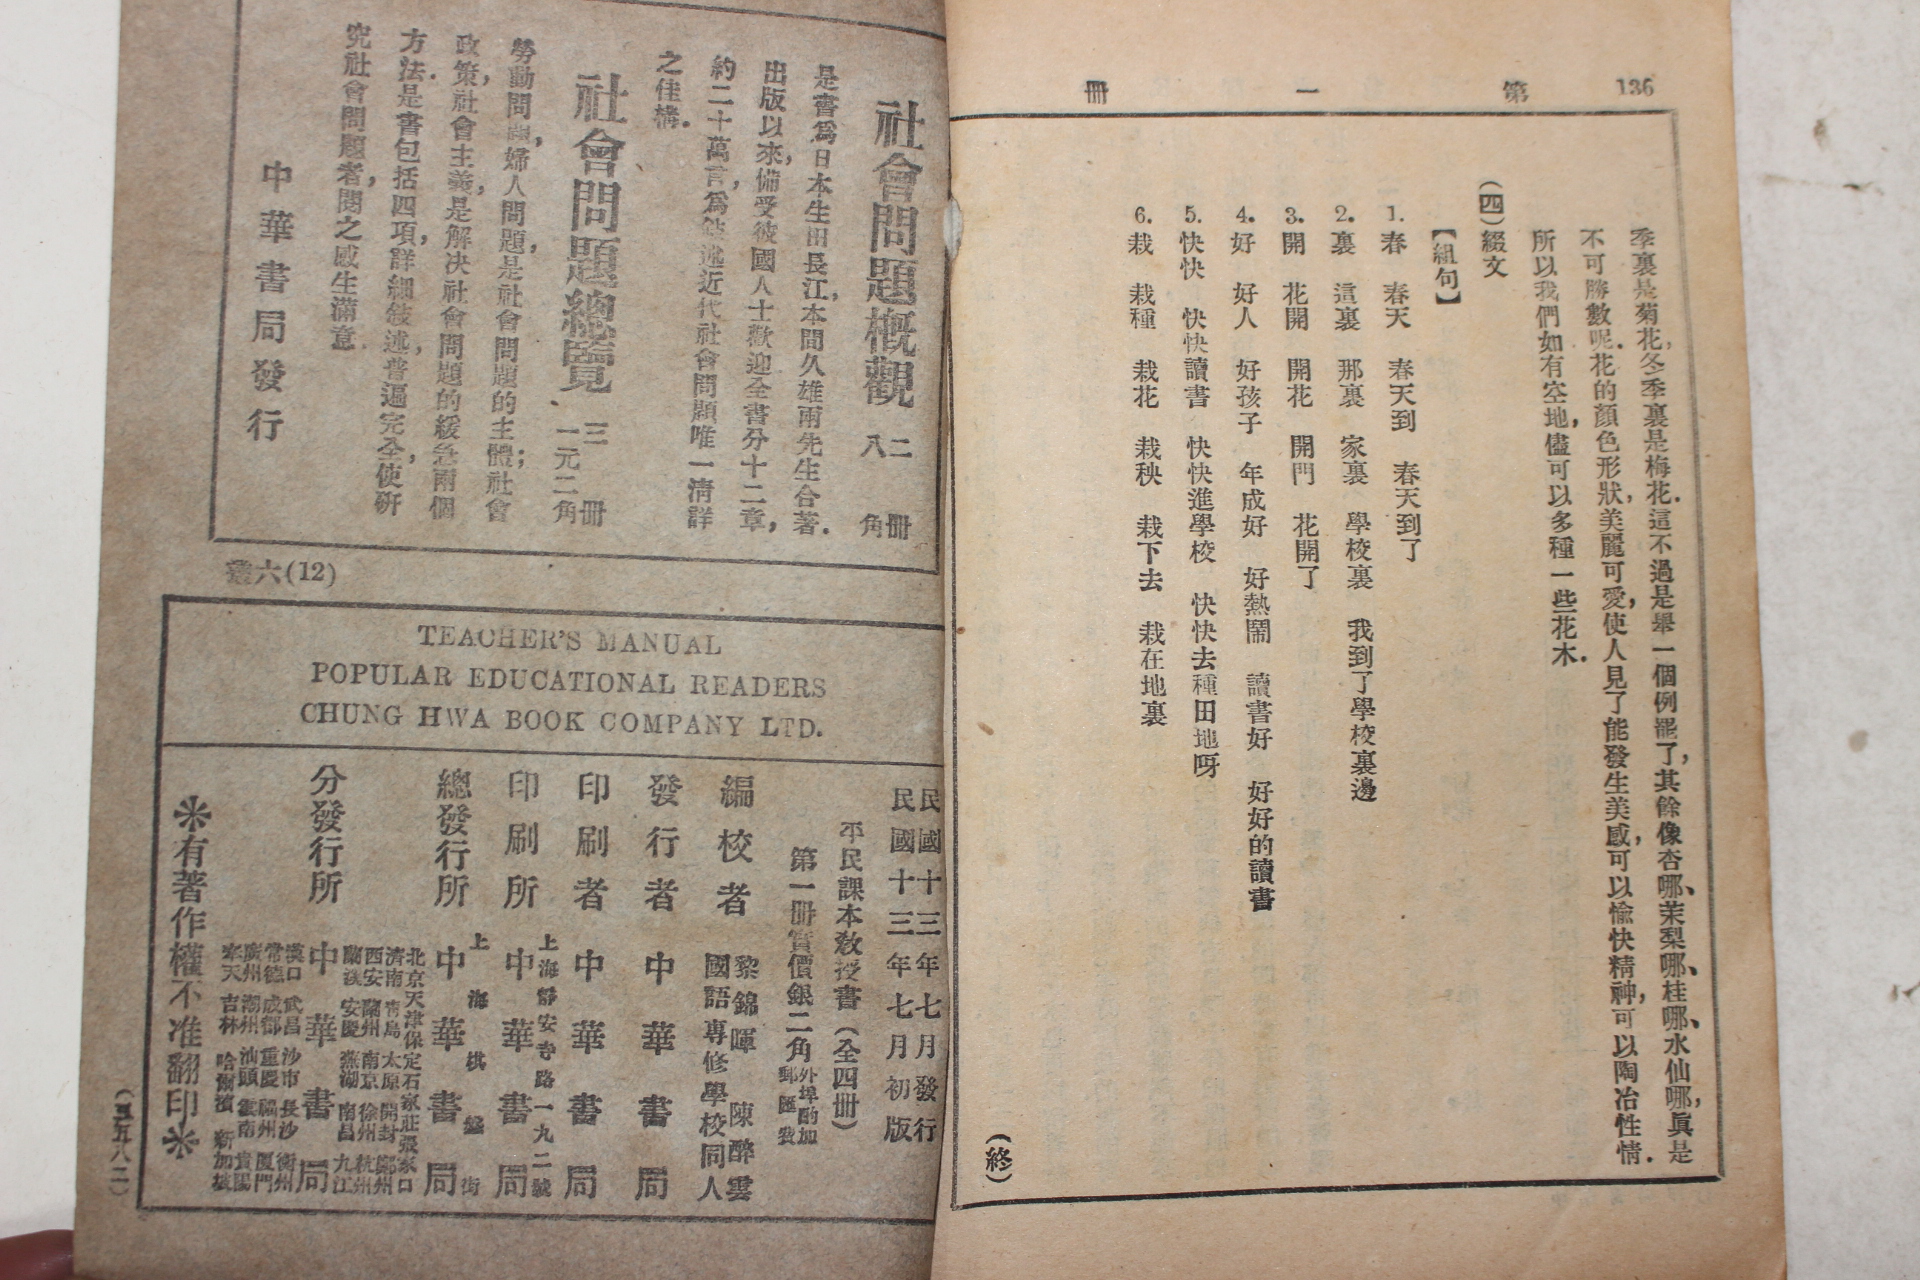 136
第一冊
季裏是菊花,冬季裏是梅花.這不過是舉一個例罷了,其餘像杏哪、茉梨哪、桂哪、水仙哪,眞是
不可勝數呢.花的顏色形狀,美麗可愛,使人見了能發生美感,可以愉快精神,可以陶冶性情.
所以我們如有空地,儘可以多種一些花木.
(四)綴文
【組句】
1. 春 春天 春天到 春天到了
2. 裏 這裏 那裏 家裏 學校裏 我到了學校裏邊
3. 開 花開 開花 開門 花開了
4. 好 好人 好孩子 年成好 好熱鬧 讀書好 好好的讀書
5. 快快 快快讀書 快快進學校 快快去種田地呀
6. 栽 栽種 栽花 栽秧 栽下去 栽在地裏
(終)
社會問題概觀 二冊 八角
是書爲日本生田長江,本間久雄兩先生合著.
出版以來,備受彼國人士歡迎全書分十二章,
約二十萬言,爲敍述近代社會問題唯一淸詳
之佳構.
社會問題總覽 三冊 一元二角
勞動問題,婦人問題,是社會問題的主體;社會
政策,社會主義,是解決社會問題的緩急兩個
方法.是書包括四項,詳細敍述,普遍完全,使研
究社會問題者,閱之感生滿意.
中華書局發行
叢六(12)
TEACHER'S MANUAL
POPULAR EDUCATIONAL READERS
CHUNG HWA BOOK COMPANY LTD.
民國十三年七月發行
民國十三年七月初版
平民課本教授書(全四冊)
第一冊實價銀二角
外埠酌加
郵匯費
編校者 黎錦暉 陳醉雲
國語專修學校同人
發行者 中華書局
印刷者 中華書局
上海靜安寺路一九二號
印刷所 中華書局
上海棋盤街
總發行所 中華書局
北京天津保定石家莊張家口
濟南 靑島 太原 開封 鄭州
西安 蘭州 南京 徐州 杭州
蘭谿 安慶 蕪湖 南昌 九江
分發行所 中華書局
漢口 武昌 沙市 長沙 衡州
常德 成都 重慶 福州 厦門
廣州 潮州 汕頭 雲南 貴陽
奉天 吉林 哈爾濱 新加坡
※有著作權不准翻印※
(三五八二)